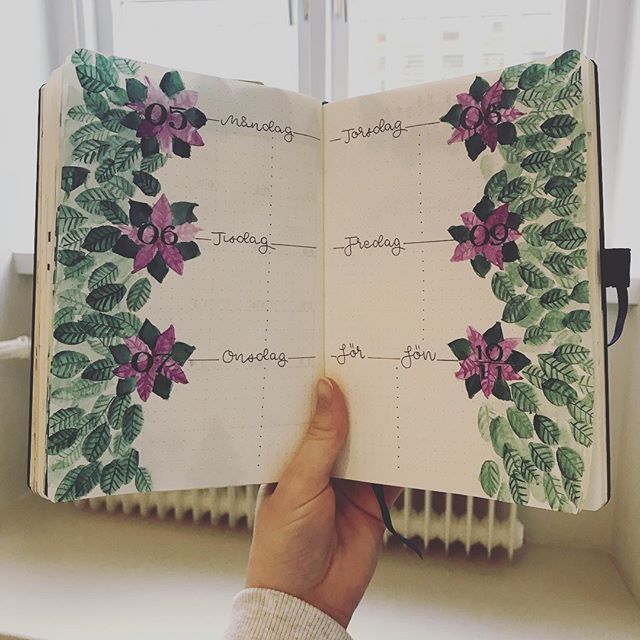 05 Måndag
06 Tisdag
07 Onsdag
Torsdag 08
Fredag 09
Lör Sön 10
11